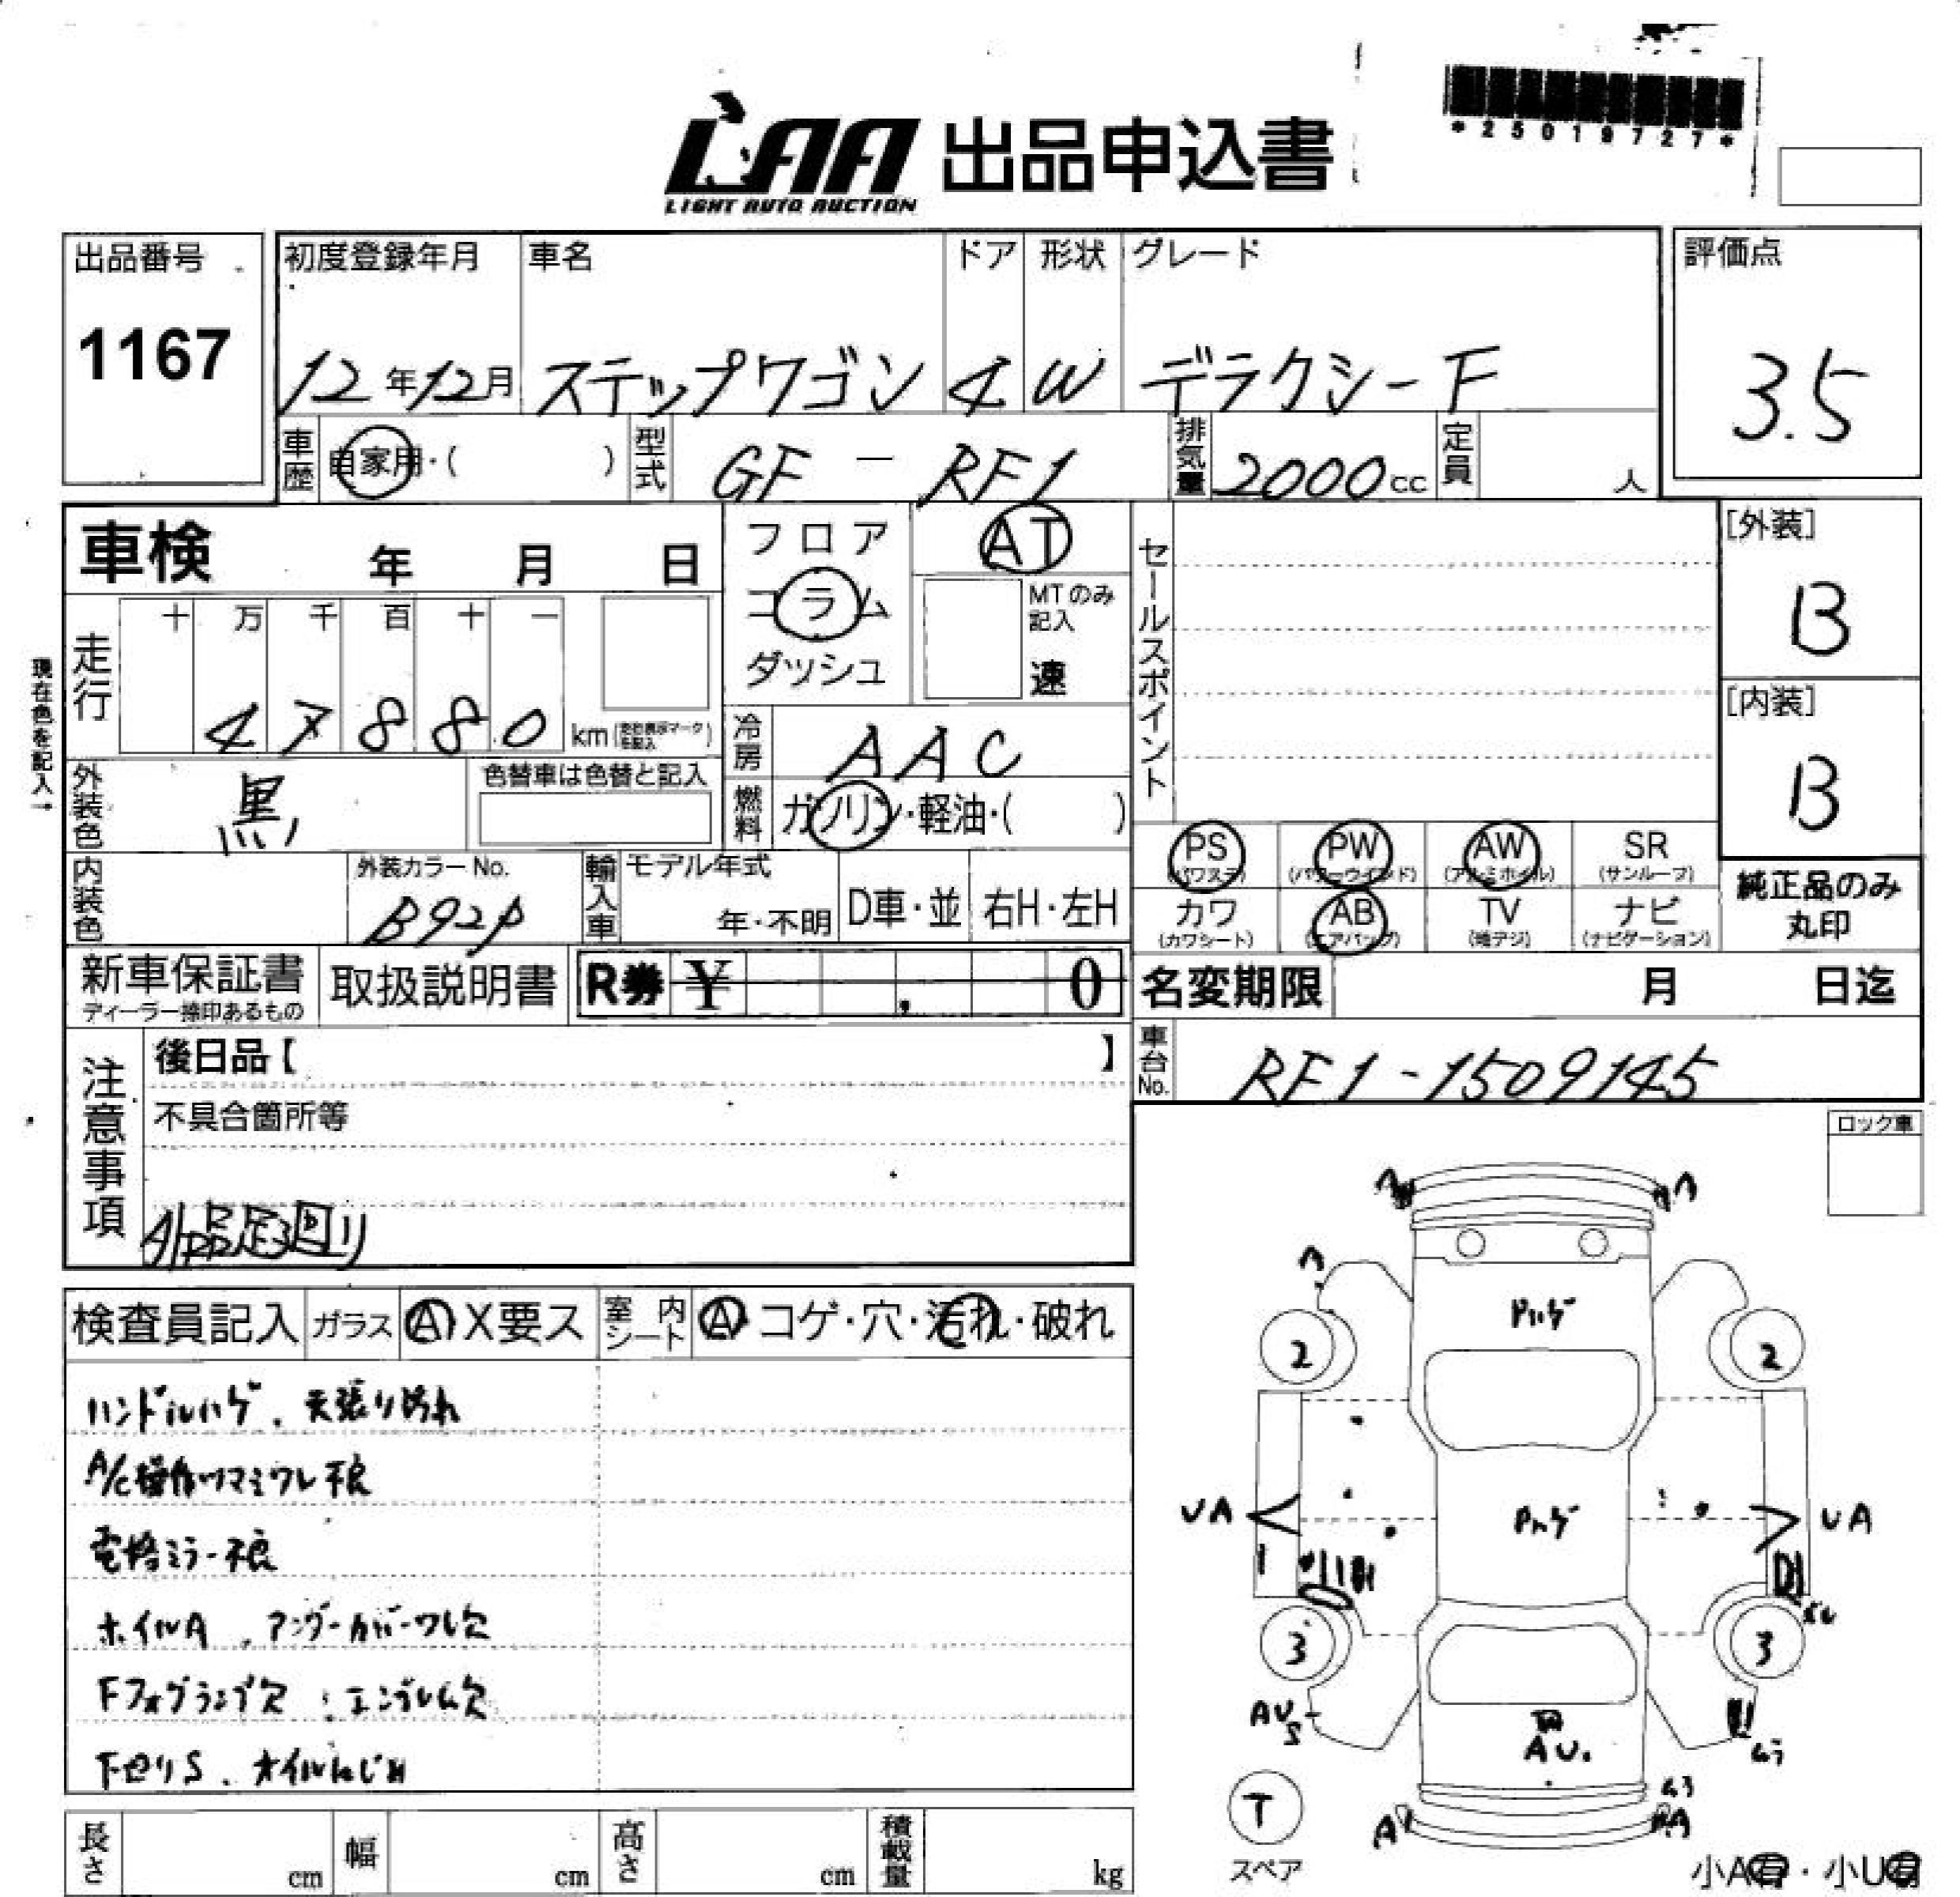 LAA 出品申込書
LIGHT AUTO AUCTION
*25019727*
出品番号 初度登録年月 車名 ドア 形状 グレード 評価点
1167 12年12月 ステップワゴン 4 W デラクシーF 3.5
車歴 自家用・( ) 型式 GF - RF1 排気量 2000cc 定員 人
車検 年 月 日
フロア
コラム
ダッシュ
AT
MTのみ記入
速
セールスポイント
[外装]
B
[内装]
B
現在色を記入→
走行 十 万 千 百 十 一
47880 km
冷房 AAC
外装色 黒 色替車は色替と記入
燃料 ガソリン・軽油・( )
内装色 外装カラーNo. B92P
輸入車 モデル年式 年・不明 D車・並 右H・左H
PS (パワステ) PW (パワーウインド) AW (アルミホイル) SR (サンルーフ)
カワ (カワシート) AB (エアバッグ) TV (地デジ) ナビ (ナビゲーション)
純正品のみ
丸印
新車保証書 取扱説明書 R券 ¥ . 0 名変期限 月 日迄
ディーラー捺印あるもの
車台No. RF1-1509145
注意事項
後日品【 】
不具合箇所等
ロック車
検査員記入 ガラス A X要ス 室内シート A コゲ・穴・汚れ・破れ
ハンドルハゲ、天張り汚れ
A/C操作ツマミワレ不良
電格ミラー不良
ホイルA、アンダーカバーワレ欠
Fフォグランプ欠 エンブレム欠
下回りS、オイルにじみ
Pハゲ
2 2
Pハゲ
UA UA
3 3
AUS
AU.
T
スペア
A
小A有・小U有
長さ cm 幅 cm 高さ cm 積載量 kg